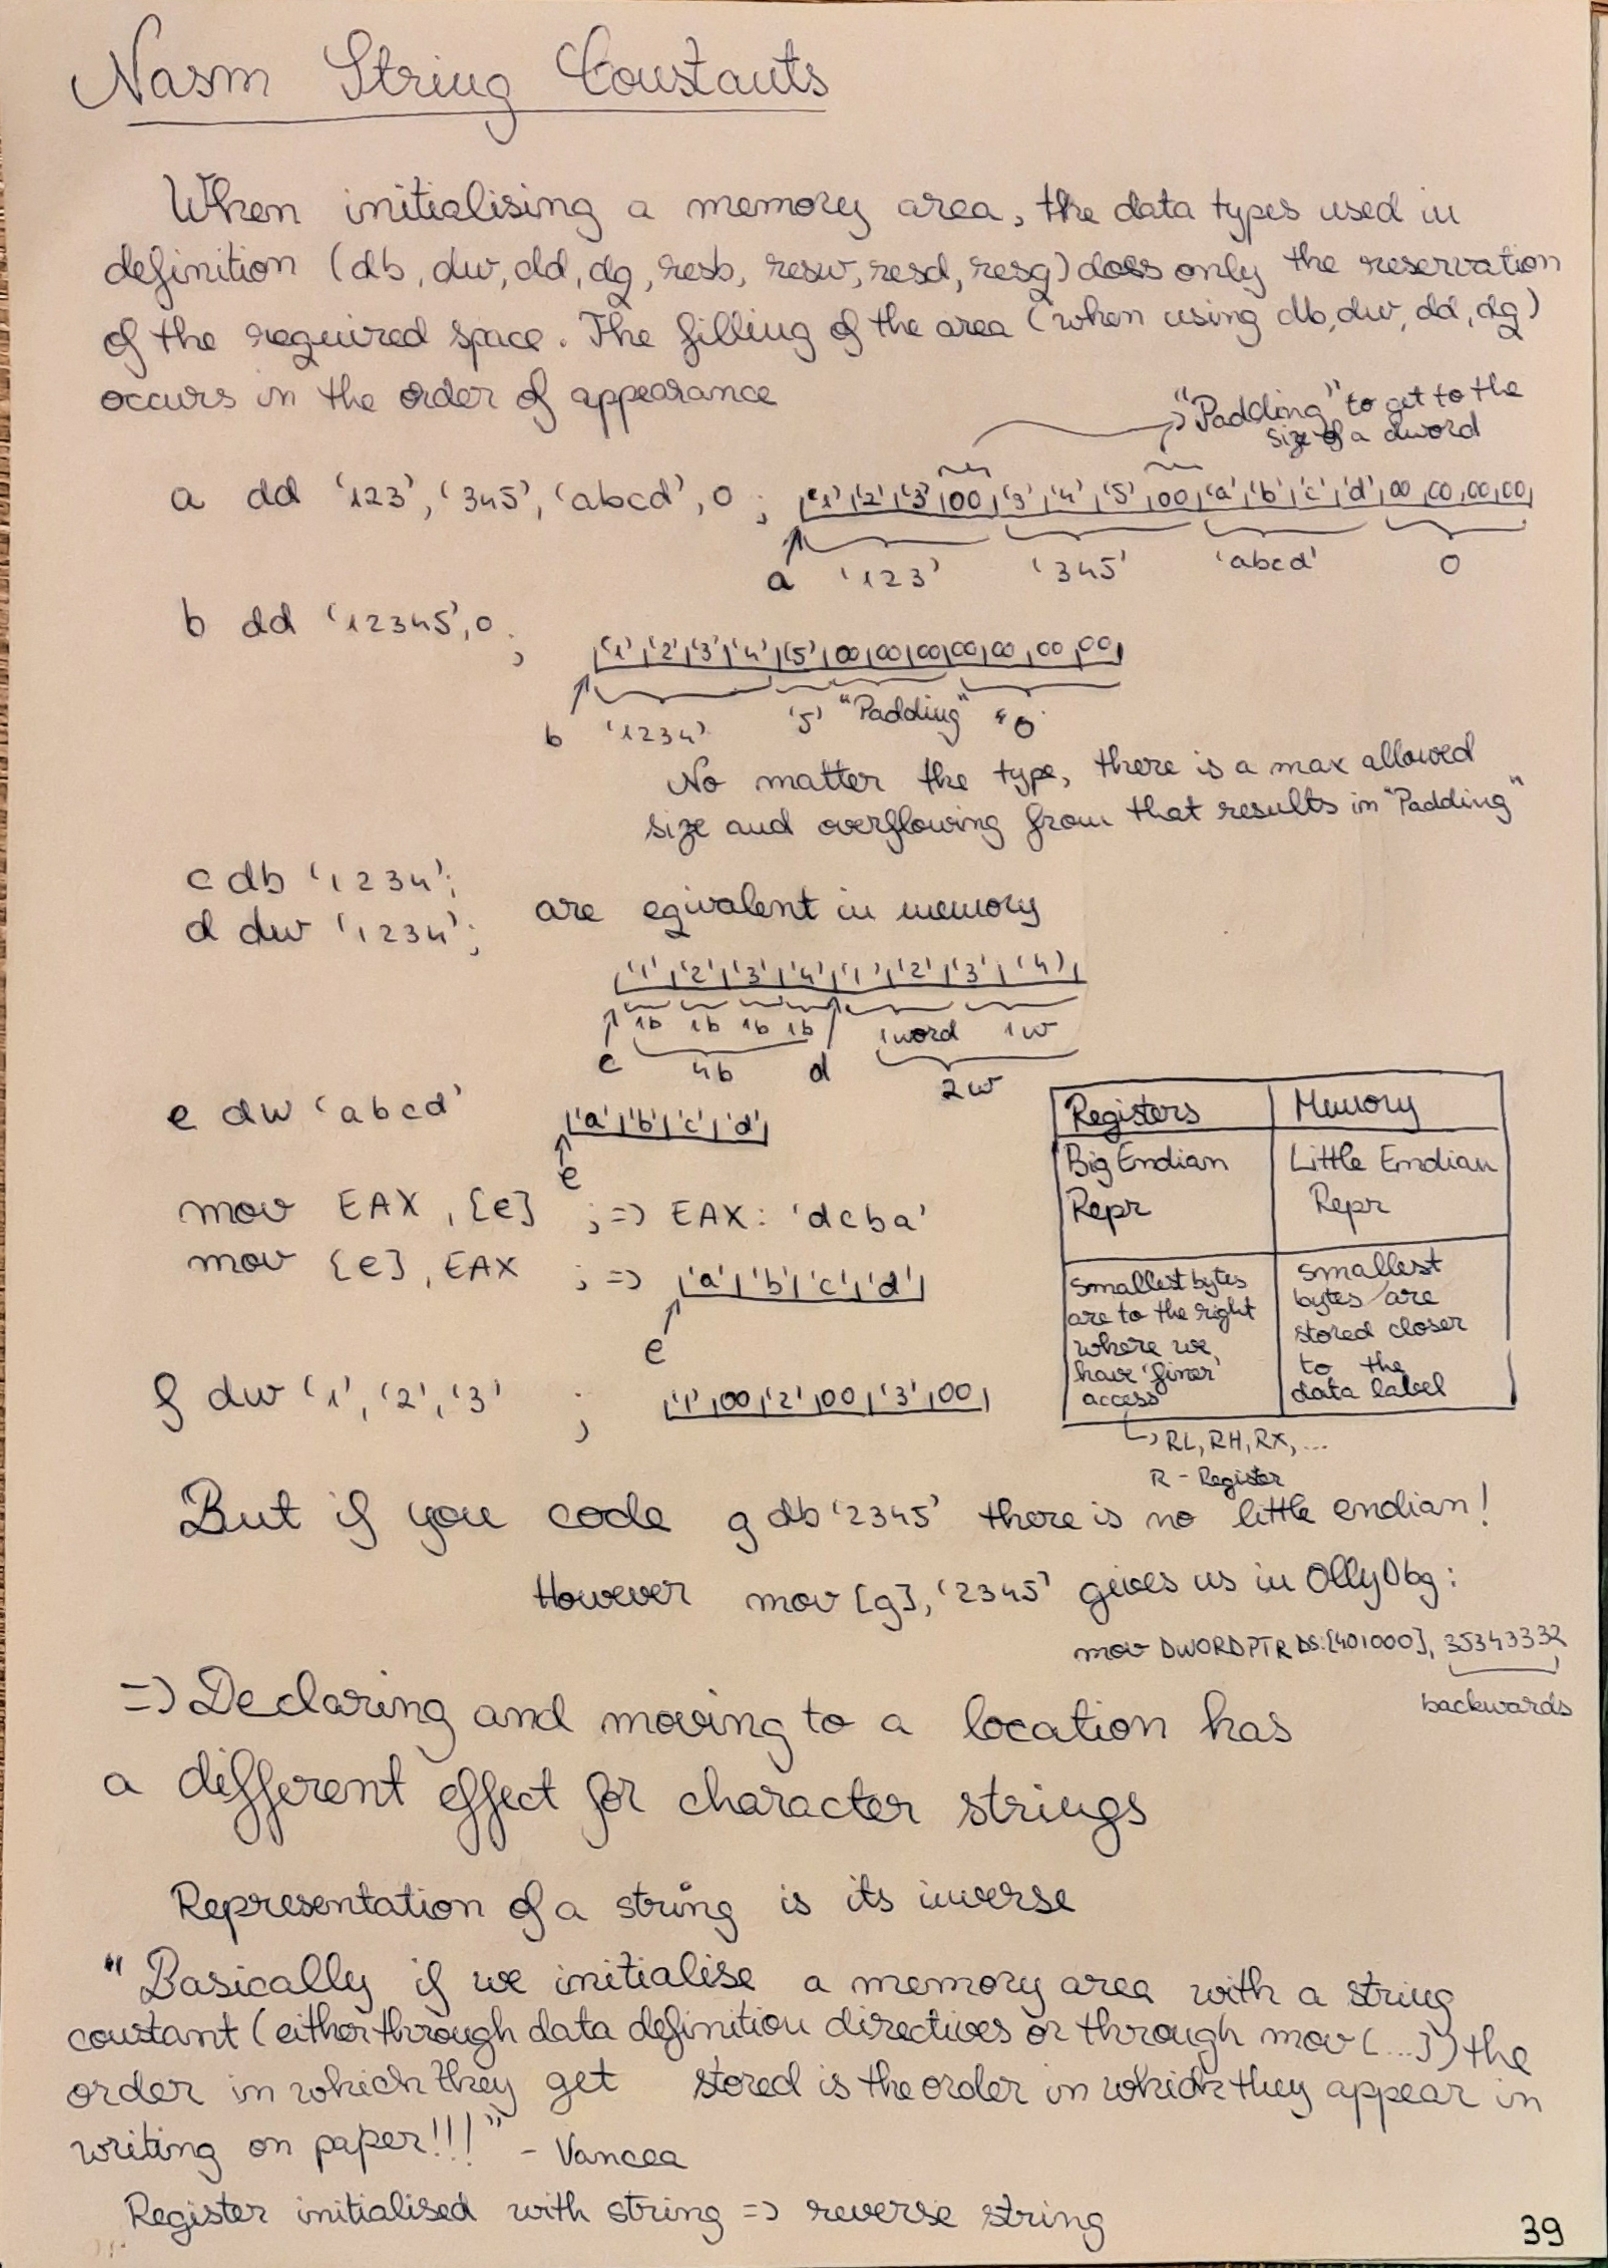 Nasm String Constants
When initialising a memory area, the data types used in
definition (db, dw, dd, dq, resb, resw, resd, resq) does only the reservation
of the required space. The filling of the area (when using db, dw, dd, dq)
occurs in the order of appearance
"Padding" to get to the
size of a dword
a dd '123', '345', 'abcd', 0 ; '1' '2' '3' 00 '3' '4' '5' 00 'a' 'b' 'c' 'd' 00 00 00 00
a '123' '345' 'abcd' 0
b dd '12345', 0 ; '1' '2' '3' '4' '5' 00 00 00 00 00 00 00
b '1234' '5' "Padding" 0
No matter the type, there is a max allowed
size and overflowing from that results in "Padding"
c db '1234';
d dw '1234'; are eqivalent in memory
'1' '2' '3' '4' '1' '2' '3' '4'
1b 1b 1b 1b 1word 1w
c 4b d 2w
e dw 'abcd' 'a' 'b' 'c' 'd'
e
mov EAX, [e] ; => EAX: 'dcba'
mov [e], EAX ; => 'a' 'b' 'c' 'd'
e
Registers Memory
Big Endian Little Endian
Repr Repr
smallest bytes
are to the right
where we
have 'finer'
access
smallest
bytes are
stored closer
to the
data label
f dw '1', '2', '3' ; '1' 00 '2' 00 '3' 00
RL, RH, RX, ...
R - Register
But if you code g db '2345' there is no little endian!
However mov [g], '2345' gives us in OllyDbg:
mov DWORD PTR DS:[401000], 35343332
backwards
=> Declaring and moving to a location has
a different effect for character strings
Representation of a string is its inverse
"Basically if we initialise a memory area with a string
constant (either through data definition directives or through mov [...]) the
order in which they get stored is the order in which they appear in
writing on paper!!!" - Vancea
Register initialised with string => reverse string
39